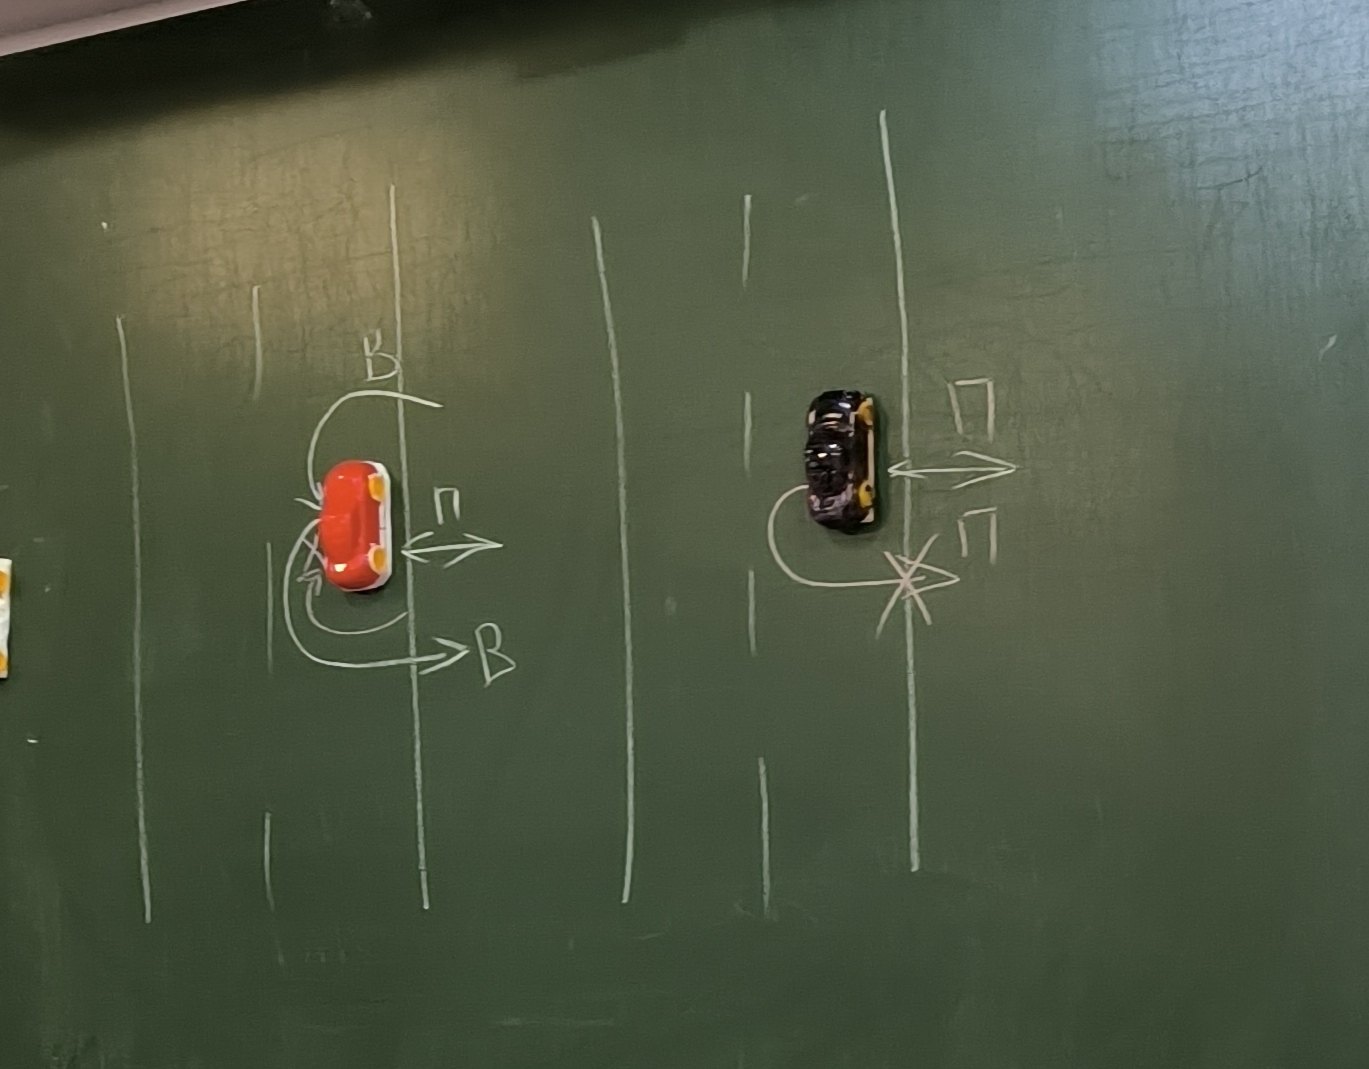 В
П
В
П
П